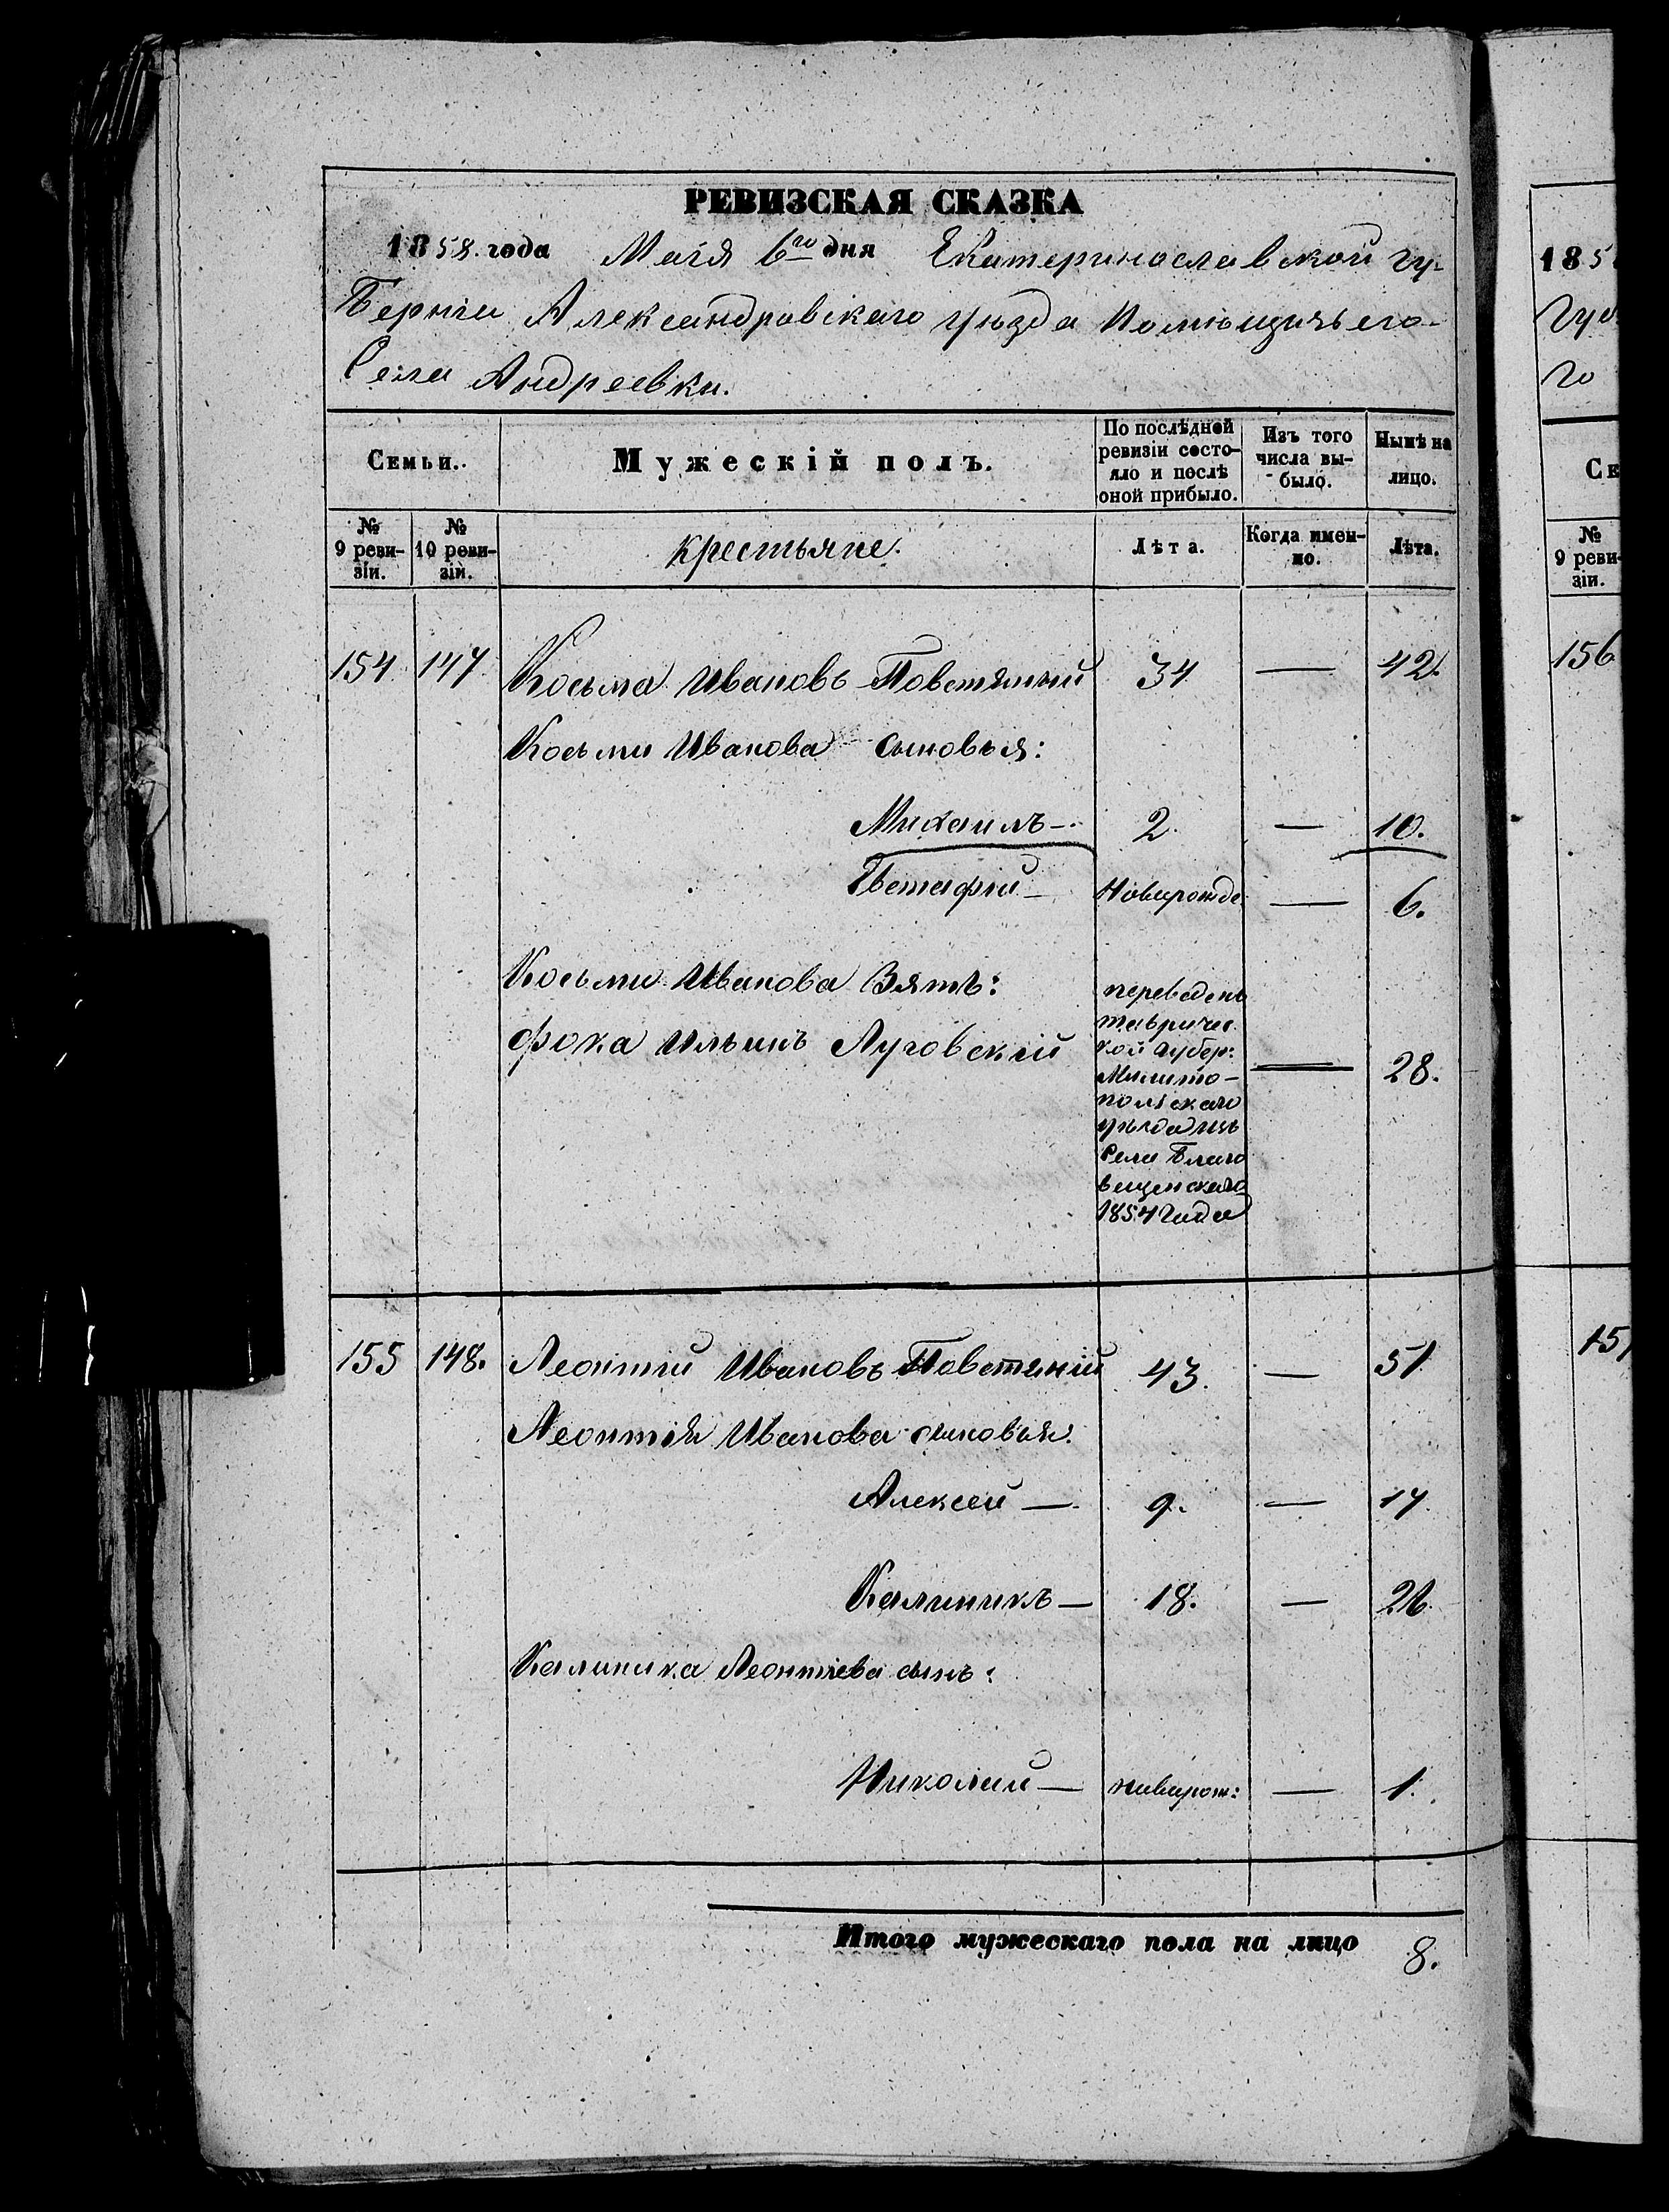 РЕВИЗСКАЯ СКАЗКА
1858. года Маія 6го дня Екатеринославской гу-
берніи Александровскаго уѣзда Помѣщичьяго
Села Андреевки.
Семьи.
Мужескій полъ.
По послѣдней ревизіи состо-
яло и послѣ оной прибыло.
Изъ того числа вы-
было.
Нынѣ на лицо.
№ 9 реви-
зіи.
№ 10 реви-
зіи.
крестьяне.
Лѣта.
Когда имен-
но.
Лѣта.
154 147 Косьма Ивановъ Повстяный 34 — 42.
Косьми Иванова сыновья:
Михаилъ — 2. — 10.
Евстафій — Новорожде — 6.
Косьми Иванова Зять:
Фока Ильинъ Луговскій — 28.
переведенъ
тавричес
кой губер:
Милито-
польскаго
уѣзда изъ
Села Благо
вещенскаго
1854 года
155 148. Леонтій Ивановъ Повстяній 43. — 51
Леонтія Иванова сыновья:
Алексей — 9. — 17
Калиникъ — 18. — 26
Калиника Леонтіева сынъ:
Николай — новорож: — 1.
Итого мужескаго пола на лицо 8.
185
Гу
го
Се
№
9 реви
зіи.
156